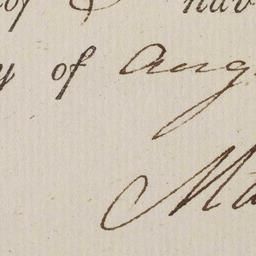 of & hav
y of Aug
Ma